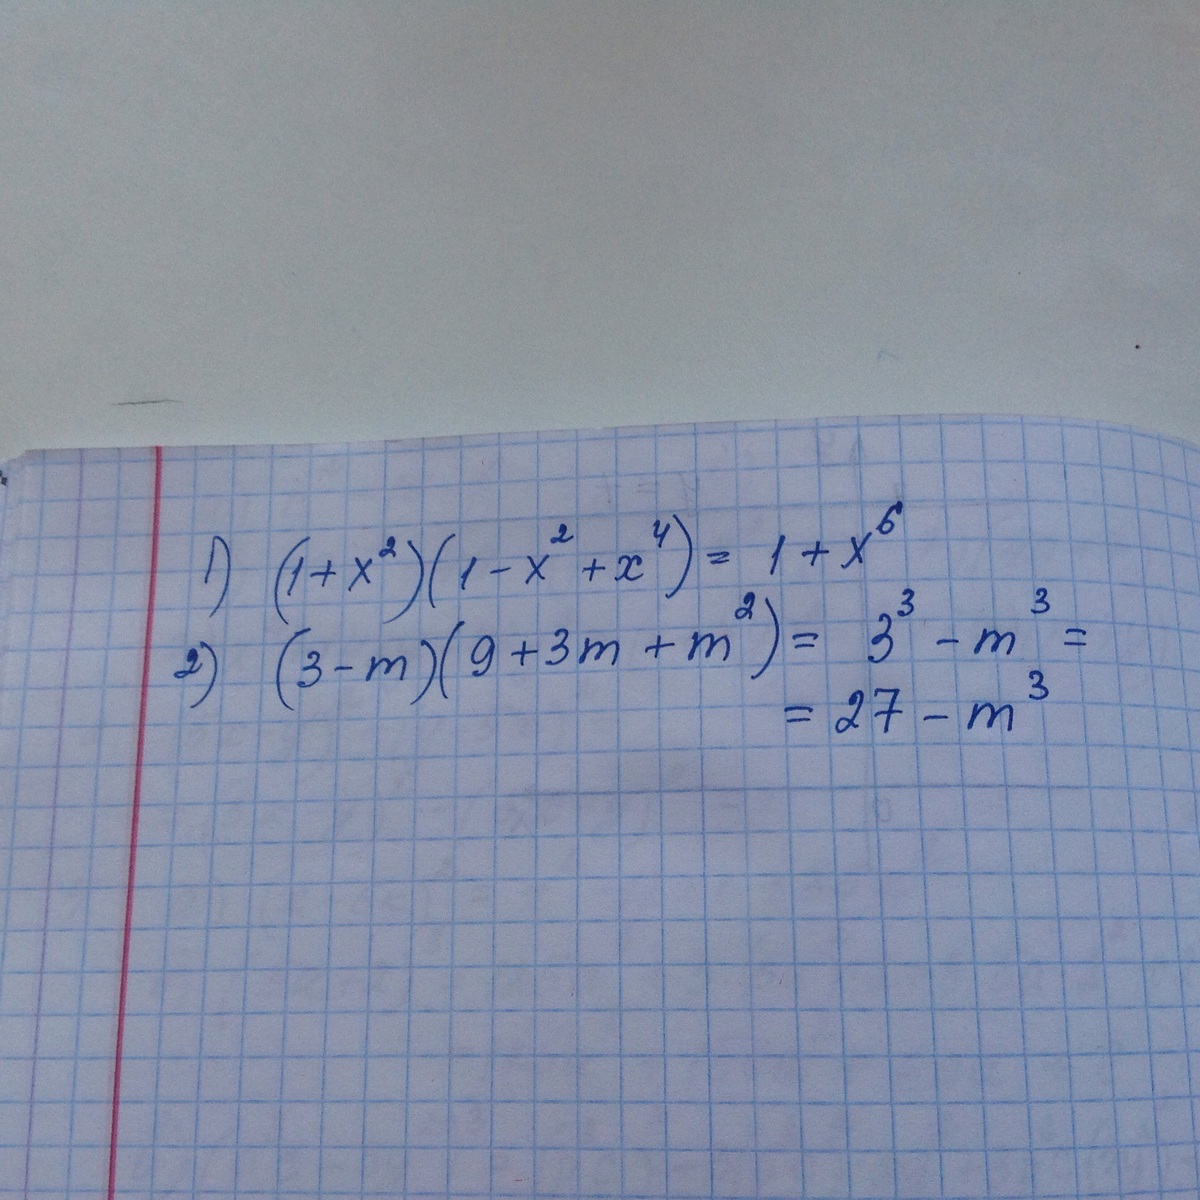 1) (1+x²)(1-x²+x⁴)= 1+x⁶
2) (3-m)(9+3m+m²)= 3³-m³=
=27-m³